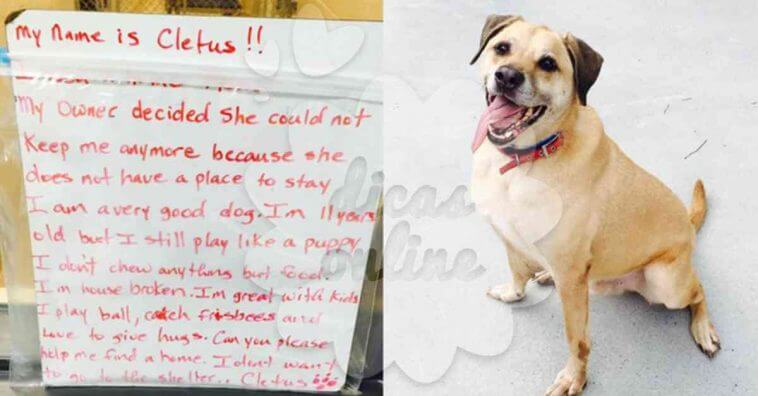 My Name is Cletus !!
My Owner decided she could not
Keep me anymore because she
does not have a place to stay
I am a very good dog. I'm 11 years
old but I still play like a puppy
I don't chew anything but food.
I'm house broken. I'm great with kids
I play ball, catch frisbees and
Love to give hugs. Can you please
help me find a home. I don't want
to go to the shelter.. Cletus
dicas
online